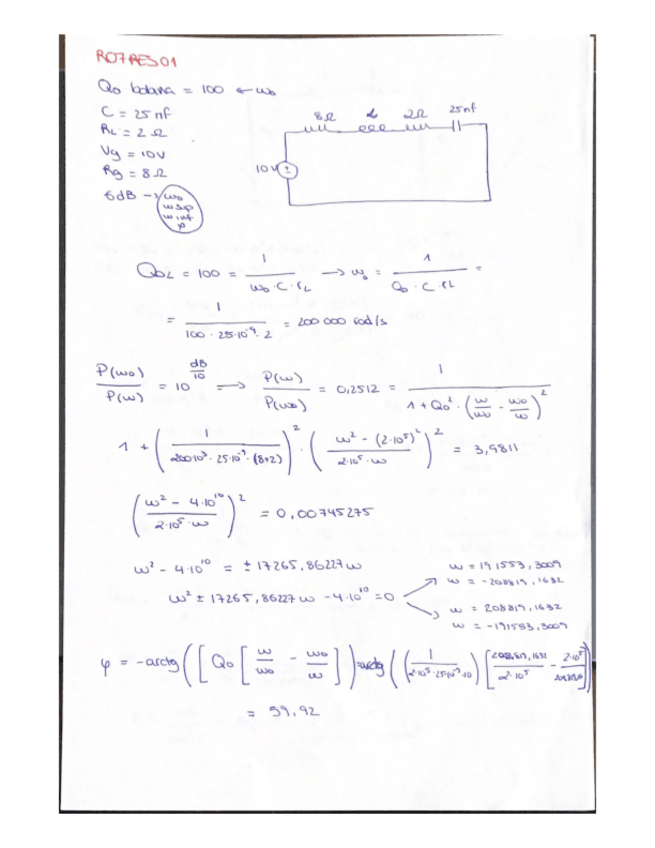 R07RES01
Q₀ bobina = 100 ← ω₀
C = 25 nf
RL = 2 Ω
Vg = 10V
Rg = 8 Ω
6dB → ω₀
ω sup
ω inf
φ
8Ω L 2Ω 25nf
10V
Q₀L = 100 = 1 / (ω₀ · C · rL) → ω₀ = 1 / (Q₀ · C · rL) =
= 1 / (100 · 25·10⁻⁹ · 2) = 200 000 rad/s
P(ω₀) / P(ω) = 10^(dB/10) → P(ω) / P(ω₀) = 0,2512 = 1 / (1 + Q₀² · (ω/ω₀ - ω₀/ω)²)
1 + (1 / (200·10³ · 25·10⁻⁹ · (8+2)))² · ((ω² - (2·10⁵)²) / (2·10⁵ · ω))² = 3,9811
((ω² - 4·10¹⁰) / (2·10⁵ · ω))² = 0,00745275
ω² - 4·10¹⁰ = ± 17265,86227ω
ω² ± 17265,86227ω - 4·10¹⁰ = 0
ω = 191553,3009
ω = -208819,1632
ω = 208819,1632
ω = -191553,3009
φ = -arctg([Q₀ [ω/ω₀ - ω₀/ω]]) = arctg((1 / (2·10⁵ · 25·10⁻⁹ · 10)) [208.819,1632 / 2·10⁵ - 2·10⁵ /
= 59,92